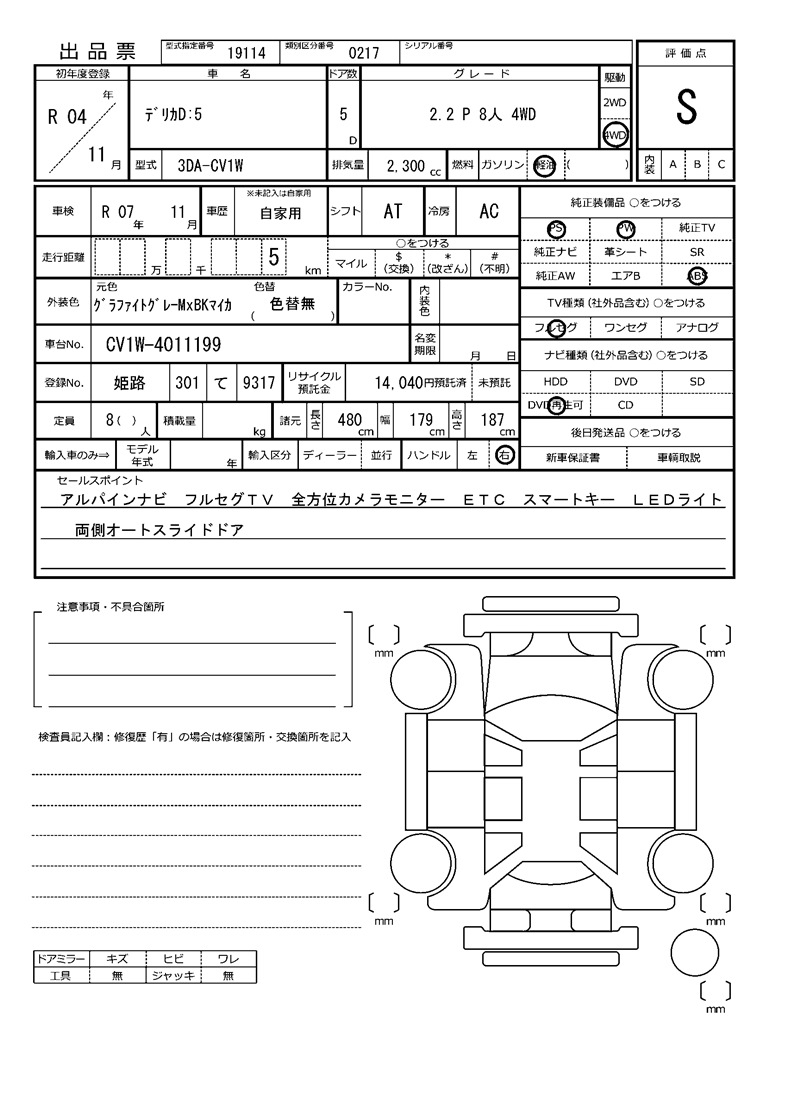 出品票 型式指定番号 19114 類別区分番号 0217 シリアル番号
評価点
S
内装 A B C
初年度登録 車名 ドア数 グレード 駆動
R 04 年 11 月 デリカD:5 5 D 2.2 P 8人 4WD 2WD
4WD
型式 3DA-CV1W 排気量 2,300 cc 燃料 ガソリン 軽油 ( )
車検 R 07 年 11 月 車歴 ※未記入は自家用 自家用 シフト AT 冷房 AC
走行距離 万 千 5 km ○をつける
マイル $ (交換) * (改ざん) # (不明)
外装色 元色 グラファイトグレーMxBKマイカ 色替 ( 色替無 ) カラーNo. 内装色
車台No. CV1W-4011199 名変期限 月 日
登録No. 姫路 301 て 9317 リサイクル預託金 14,040円預託済 未預託
定員 8 ( ) 人 積載量 kg 諸元 長さ 480 cm 幅 179 cm 高さ 187 cm
輸入車のみ⇒ モデル年式 年 輸入区分 ディーラー 並行 ハンドル 左 右
純正装備品 ○をつける
PS PW 純正TV
純正ナビ 革シート SR
純正AW エアB ABS
TV種類 (社外品含む) ○をつける
フルセグ ワンセグ アナログ
ナビ種類 (社外品含む) ○をつける
HDD DVD SD
DVD再生可 CD
後日発送品 ○をつける
新車保証書 車輌取説
セールスポイント
アルパインナビ フルセグTV 全方位カメラモニター ETC スマートキー LEDライト
両側オートスライドドア
注意事項・不具合箇所
検査員記入欄：修復歴「有」の場合は修復箇所・交換箇所を記入
ドアミラー キズ ヒビ ワレ
工具 無 ジャッキ 無
〔 〕 mm
〔 〕 mm
〔 〕 mm
〔 〕 mm
〔 〕 mm